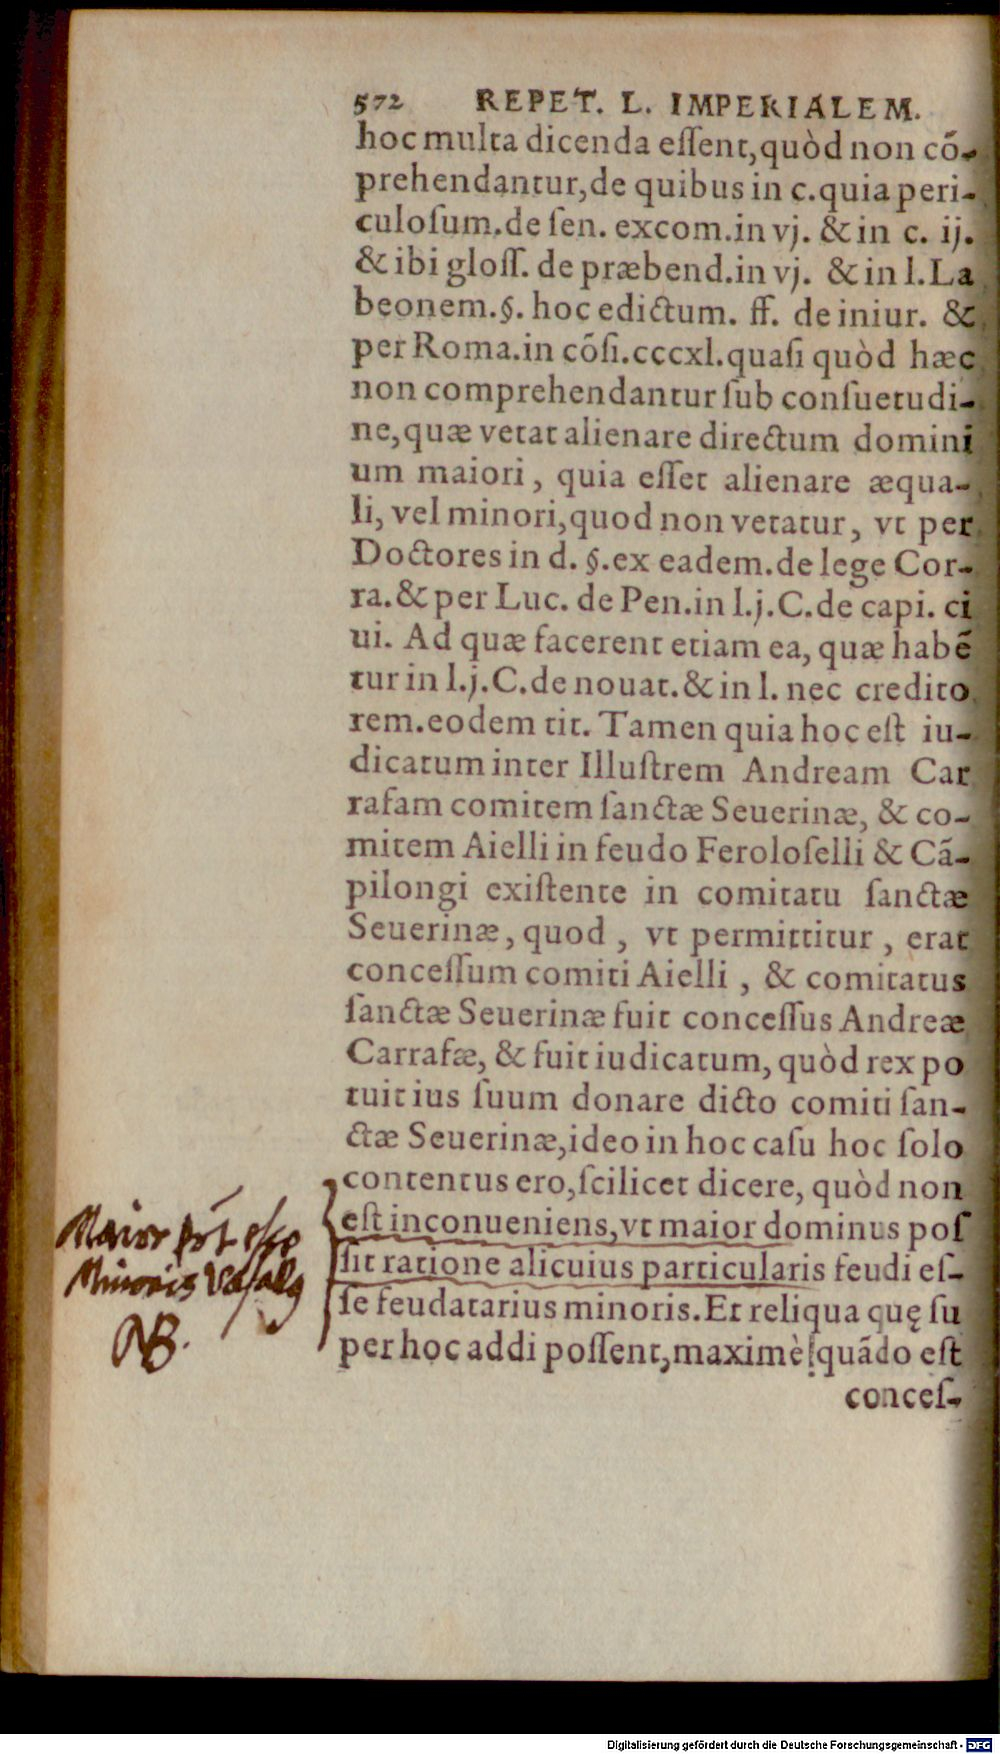 572 REPET. L. IMPERIALEM.
hoc multa dicenda eſſent,quòd non cõ-
prehendantur,de quibus in c.quia peri-
culoſum.de ſen. excom.in vj. & in c. ij.
& ibi gloſſ. de præbend.in vj. & in l.La
beonem.§. hoc edictum. ff. de iniur. &
per Roma.in cõſi.cccxl.quaſi quòd hæc
non comprehendantur ſub conſuetudi-
ne,quæ vetat alienare directum domini
um maiori, quia eſſet alienare æqua-
li, vel minori,quod non vetatur, vt per
Doctores in d. §.ex eadem.de lege Cor-
ra.& per Luc. de Pen.in l.j.C.de capi. ci
ui. Ad quæ facerent etiam ea, quæ habẽ
tur in l.j.C.de nouat.& in l. nec credito
rem.eodem tit. Tamen quia hoc eſt iu-
dicatum inter Illuſtrem Andream Car
rafam comitem ſanctæ Seuerinæ, & co-
mitem Aielli in feudo Feroloſelli & Cã-
pilongi exiſtente in comitatu ſanctæ
Seuerinæ, quod, vt permittitur, erat
conceſſum comiti Aielli, & comitatus
ſanctæ Seuerinæ fuit conceſſus Andreæ
Carrafæ, & fuit iudicatum, quòd rex po
tuit ius ſuum donare dicto comiti ſan-
ctæ Seuerinæ,ideo in hoc caſu hoc ſolo
contentus ero,ſcilicet dicere, quòd non
eſt inconueniens,vt maior dominus poſ
ſit ratione alicuius particularis feudi eſ-
ſe feudatarius minoris.Et reliqua quę ſu
per hoc addi poſſent,maximè quãdo eſt
conceſ-
Maior põt eſſe
Minoris Vaſallg
NB.